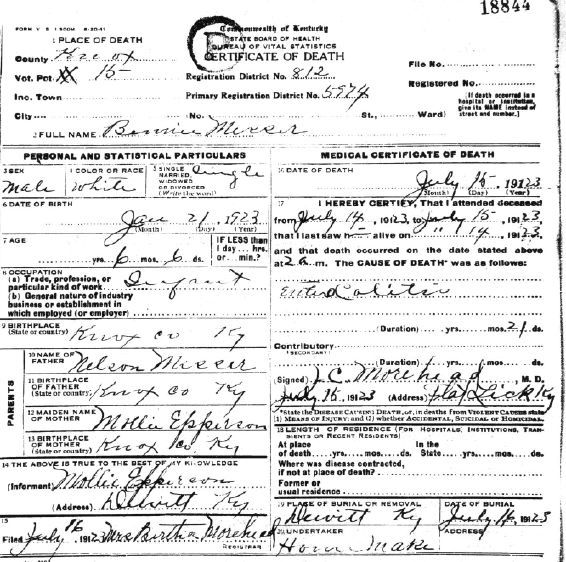 18844
FORM V. S. 1
Commonwealth of Kentucky
STATE BOARD OF HEALTH
BUREAU OF VITAL STATISTICS
CERTIFICATE OF DEATH
1 PLACE OF DEATH
County Knox
Vot. Pct. 15
Inc. Town
City No. St., Ward)
Registration District No. 812
Primary Registration District No. 5974
File No.
Registered No.
(If death occurred in a hospital or institution, give its NAME instead of street and number.)
2 FULL NAME Bonnie Messer
PERSONAL AND STATISTICAL PARTICULARS
3 SEX
Male
4 COLOR OR RACE
White
5 SINGLE, MARRIED, WIDOWED OR DIVORCED (Write the word)
Single
6 DATE OF BIRTH
Jan 21, 1923
(Month) (Day) (Year)
7 AGE
yrs. 6 mos. 6 ds.
IF LESS than 1 day... hrs. or min.?
8 OCCUPATION
(a) Trade, profession, or particular kind of work Infant
(b) General nature of industry business or establishment in which employed (or employer)
9 BIRTHPLACE
(State or country) Knox Co Ky
PARENTS
10 NAME OF FATHER Nelson Messer
11 BIRTHPLACE OF FATHER
(State or country) Knox Co Ky
12 MAIDEN NAME OF MOTHER Mollie Epperson
13 BIRTHPLACE OF MOTHER
(State or country) Knox Co Ky
14 THE ABOVE IS TRUE TO THE BEST OF MY KNOWLEDGE
(Informant) Mollie Epperson
(Address) Dewitt Ky
15
Filed July 16, 1923 Mrs Birtha Morehead
REGISTRAR
MEDICAL CERTIFICATE OF DEATH
16 DATE OF DEATH
July 15, 1923
(Month) (Day) (Year)
17 I HEREBY CERTIFY, That I attended deceased
from July 14, 1923, to July 15, 1923,
that I last saw h alive on " 14, 1923,
and that death occurred on the date stated above
at 2 a.m. The CAUSE OF DEATH* was as follows:
Entero Colitis
(Duration) yrs. mos. 21 ds.
Contributory
(SECONDARY)
(Duration) yrs. mos. ds.
Signed L C Morehead, M. D.
July 16, 1923 (Address) Flat Lick Ky
*State the DISEASE CAUSING DEATH, or, in deaths from VIOLENT CAUSES state (1) MEANS OF INJURY; and (2) whether ACCIDENTAL, SUICIDAL or HOMICIDAL.
18 LENGTH OF RESIDENCE (FOR HOSPITALS, INSTITUTIONS, TRANSIENTS OR RECENT RESIDENTS)
At place of death yrs. mos. ds. In the State yrs. mos. ds.
Where was disease contracted, if not at place of death?
Former or usual residence
19 PLACE OF BURIAL OR REMOVAL
Dewitt Ky
DATE OF BURIAL
July 16, 1923
20 UNDERTAKER
Home Make
ADDRESS